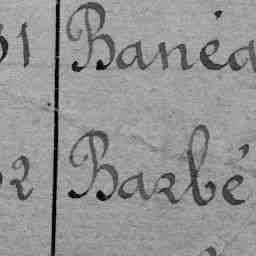 31 Banéa
32 Barbé